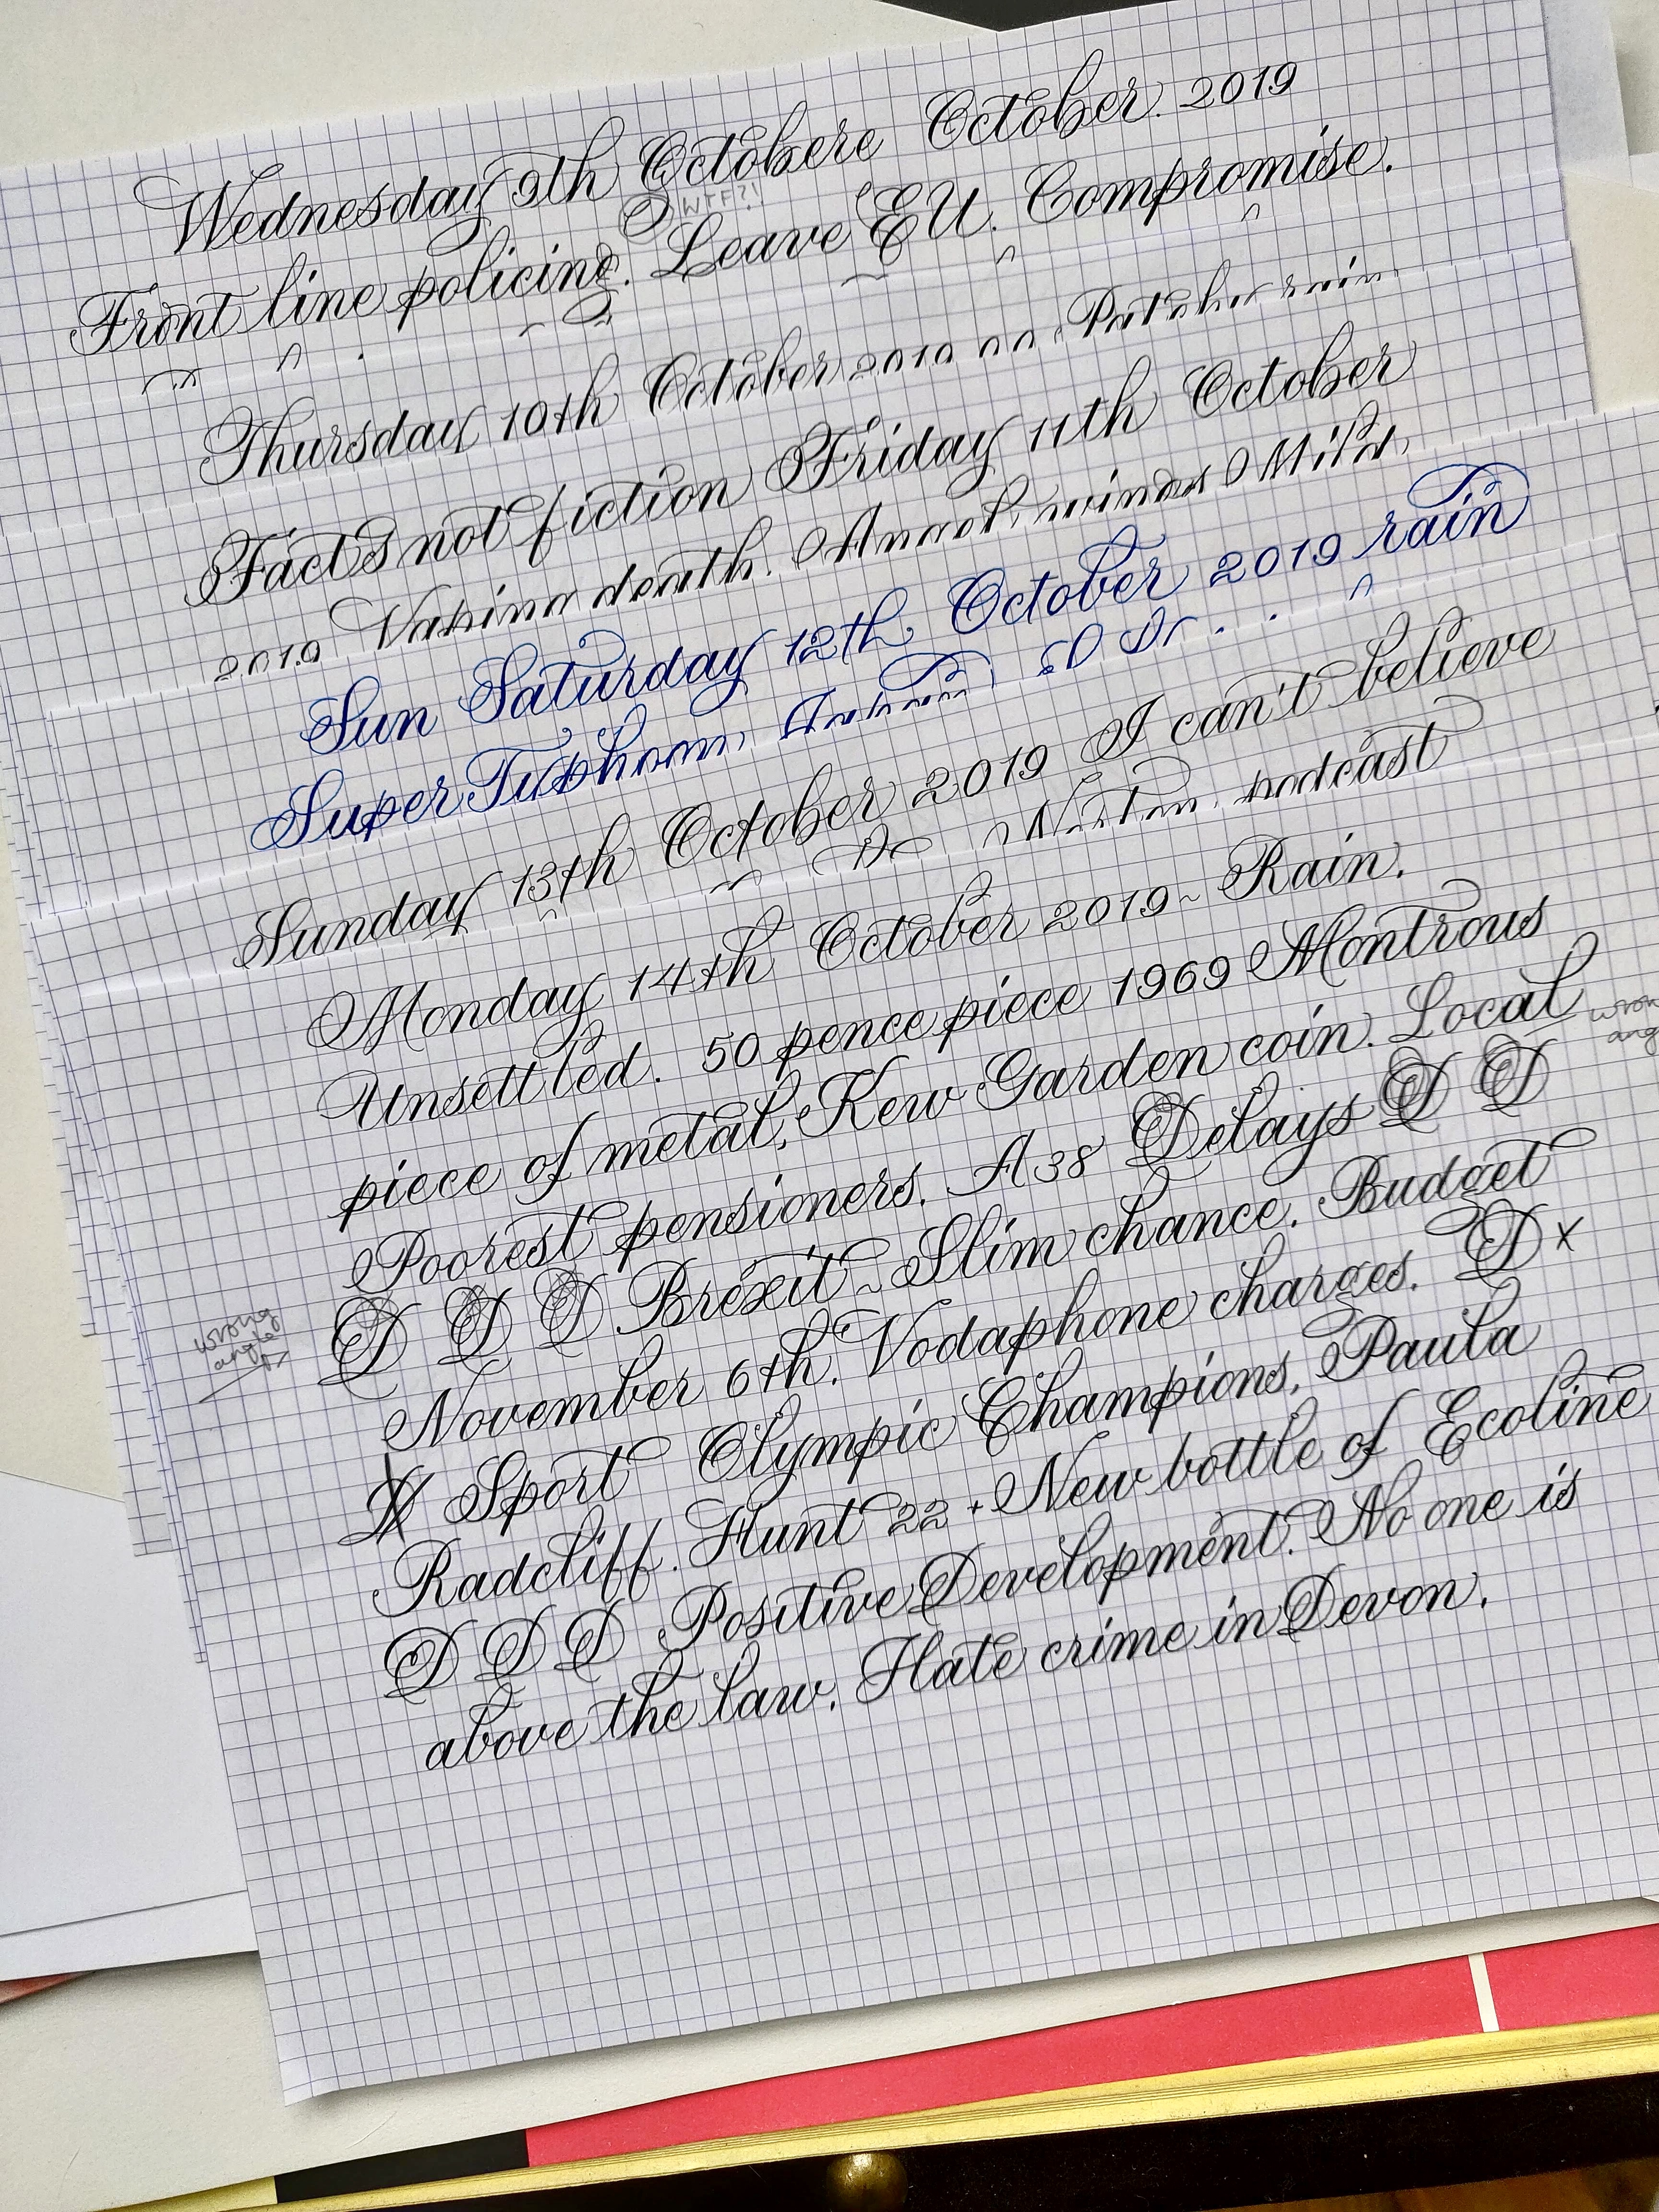 Wednesday 9th Octobere October. 2019
WTF?!
Front line policing. Leave EU. Compromise.
Thursday 10th October 2019 rain
Facts not fiction Friday 11th October
2019 Vaping death. winds Mild.
Sun Saturday 12th October 2019 rain
Super Typhoon
Sunday 13th October 2019 I can't believe
Dr podcast
Monday 14th October 2019~ Rain.
Unsettled. 50 pence piece 1969 Montrous
piece of metal, Kew Garden coin. Local
wron
ang
Poorest pensioners. A38 Delays D D
D D D Brexit ~ Slim chance. Budget
wrong
angle
November 6th. Vodaphone charges. D x
X Sport Olympic Champions, Paula
Radcliff. Hunt 22 + New bottle of Ecoline
D D D Positive Development. No one is
above the law. Hate crime in Devon.